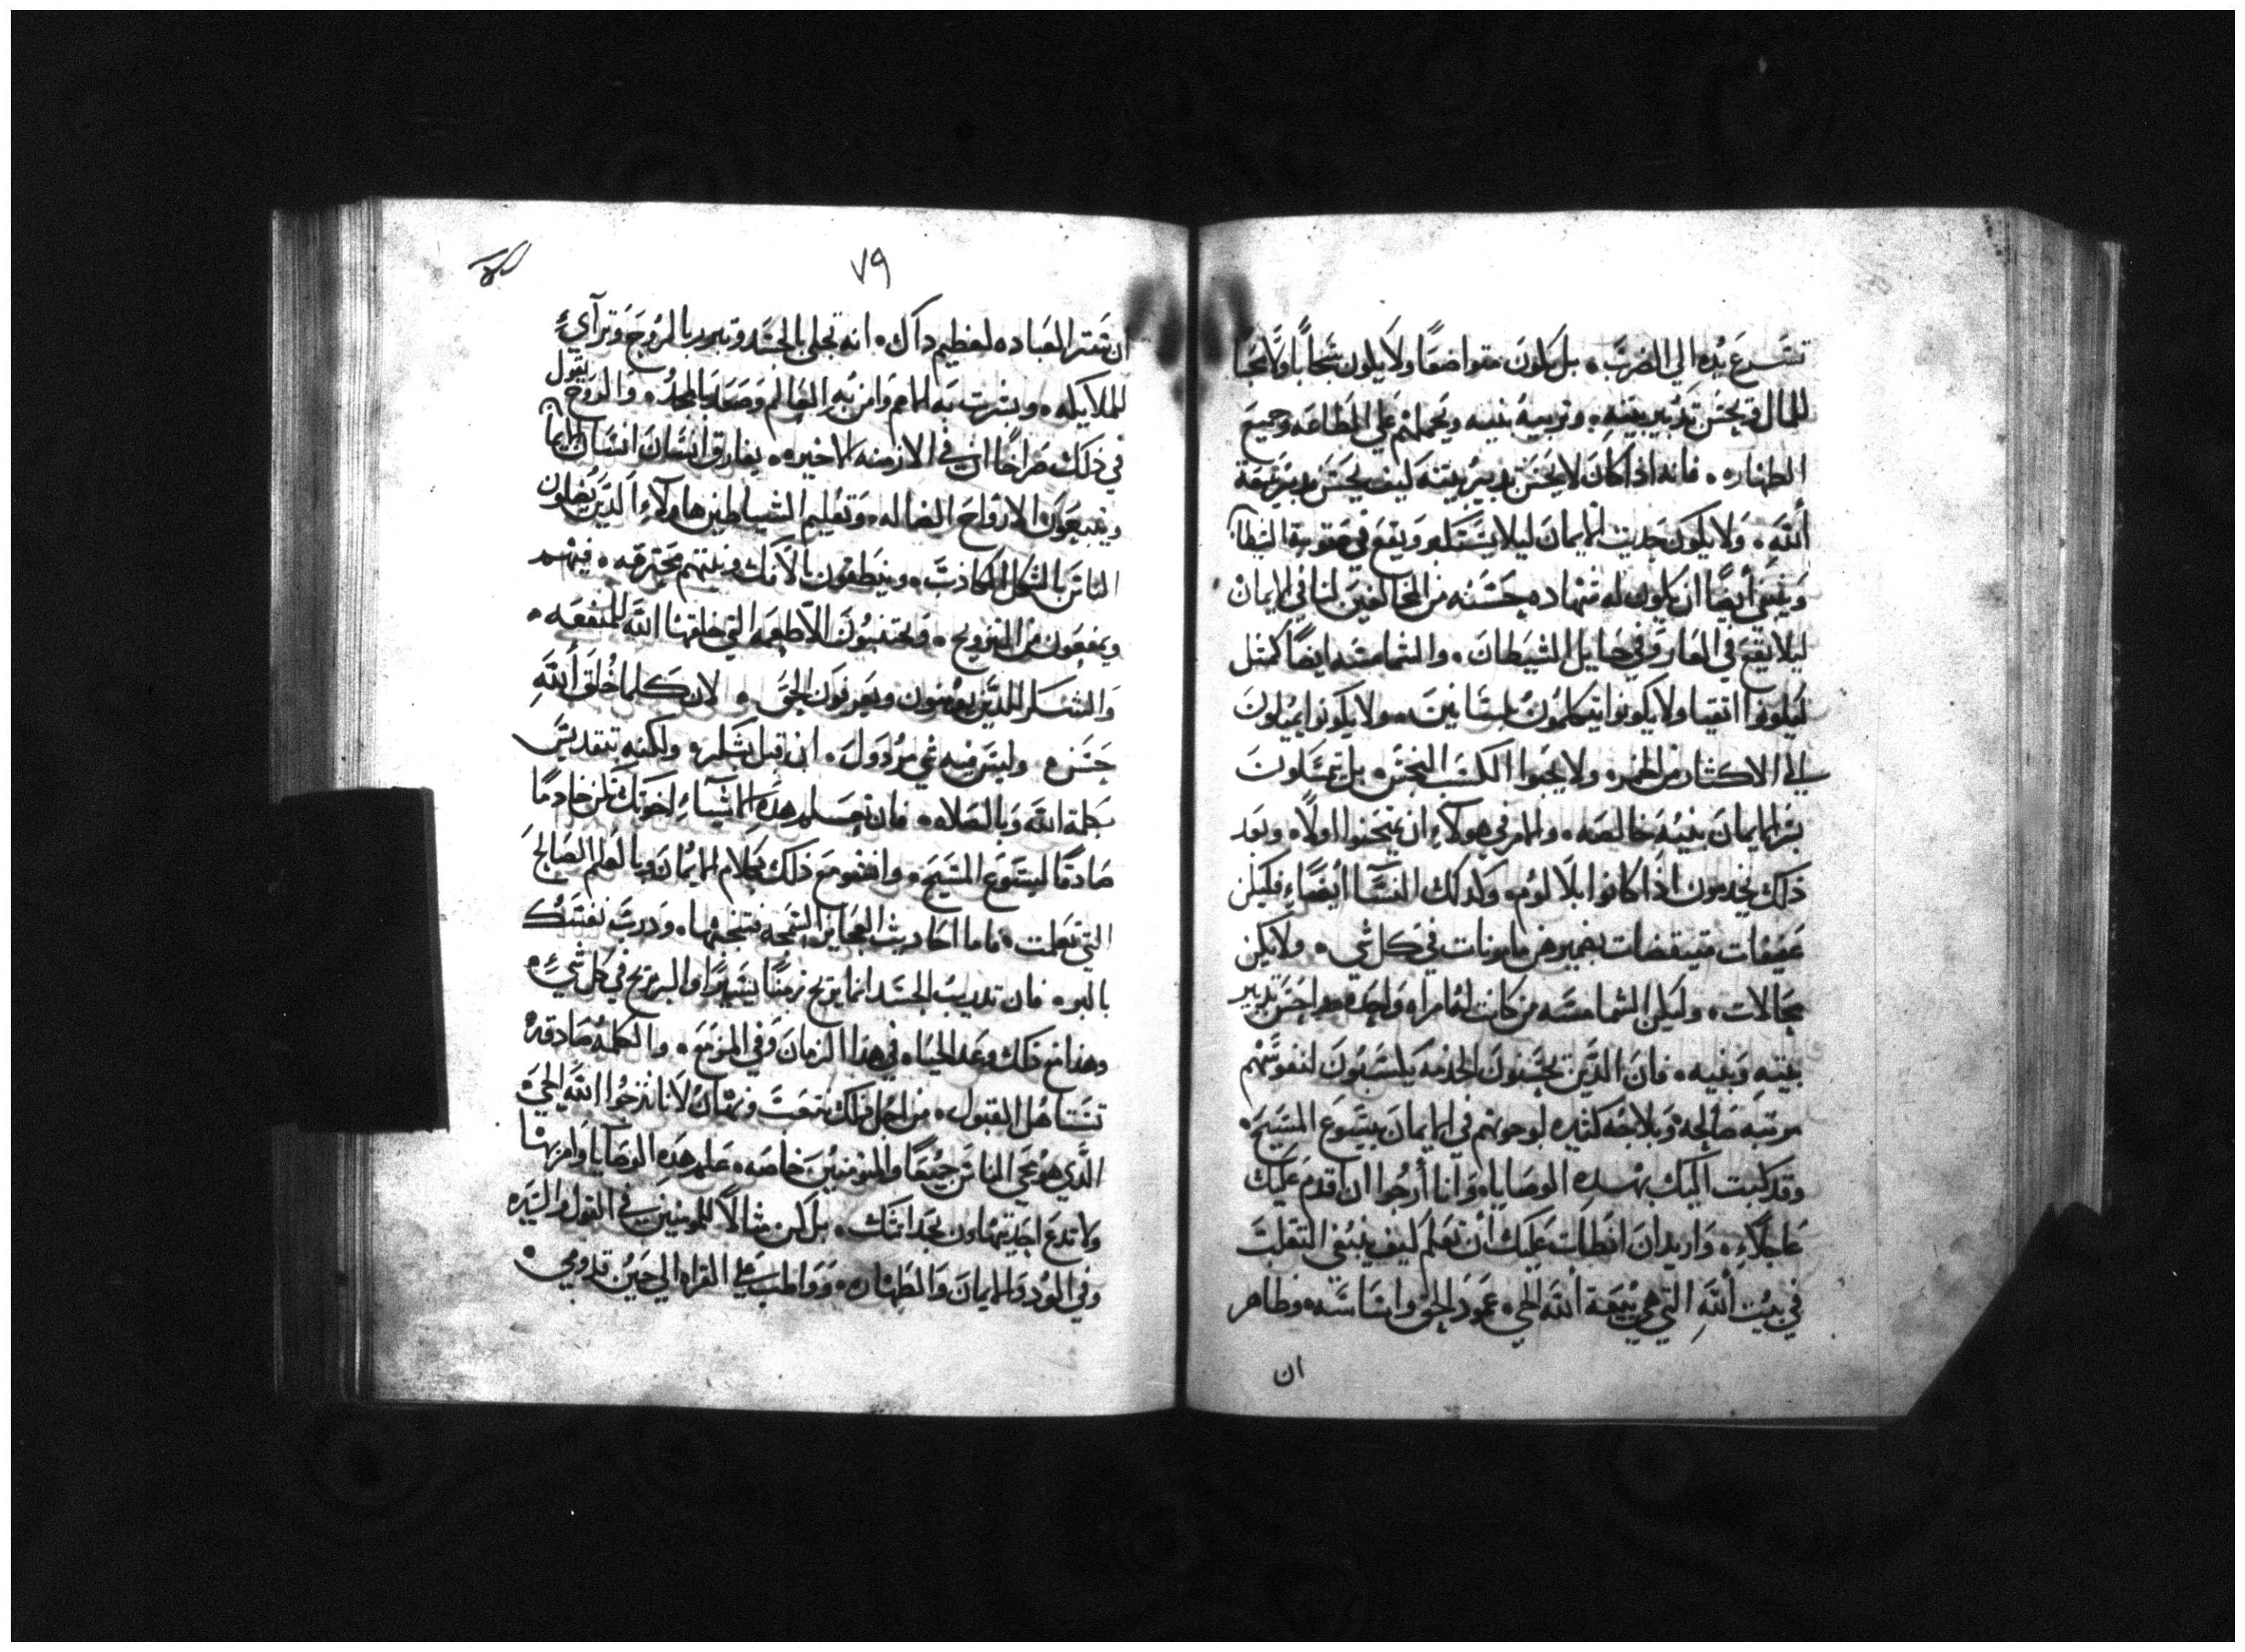 تسرع يده الي الضرب. بل يكون متواضعًا ولا يكون سخابًا ولا محبا
للمال ويحسن تدبير بيته. وتربية بنيه ويحملهم علي الطاعه وجميع
الطهاره. فانه اذا كان لا يحسن تدبير بيته كيف يحسن تدبير بيعة
الله. ولا يكون حديت الايمان ليلا يستكبر ويقع في عقوبة الشيطان
وينبغي أيضًا ان يكون له شهاده حسنه من المخالفين لنا في الايمان
ليلا يقع في العار وفي حبايل الشيطان. والشمامسه ايضًا كمثل
ليكونوا اتقيا ولا يكونوا يتكلمون بلسانين. ولا يكونوا يميلون
الي الاكثار من الخمر. ولا يحبوا المكسب النجس. بل يتمسكون
بسر الايمان بنيه خالصه. والامر في هولآء ان يمتحنوا اولًا. وبعد
ذلك يخدمون اذا كانوا بلا لوم. وكدلك النسآ ايضًا فليكن
عفيفات متيقضات بضميرهن مامونات في كل شي. ولا يكن
محالات. وليكن الشمامسه من كانت له امراه واحدة احسن تدبير
بيته وبنيه. فان الدين يحسنون الخدمه يكتسبون لنفوسهم
مرتبه صالحه وبلاجه كثيره لوجوههم في الايمان بيسوع المسيح.
وقد كتبت اليك بهده الوصايا. وانا أرجوا ان اقدم عليك
عاجلاء. واريد ان ابطات عليك أن تعلم كيف ينبغي التقلب
في بيت الله التي هي بيعة الله الحي. عمود الحق واساسه. وظاهر
ان
٧٩
ان سر العباده لعظيم داك. انه تجلى بالجسد وتبرر بالروح وترآي
للملايكه. وبشرت به الامم وامن به العالم وصعد بالمجد. والروح يقول
في ذلك صراحًا ان في الازمنه الاخيره. يفارق انسان انسان الايمان
ويتبعون الارواح الضاله. وتعليم الشياطين هاولآء الدين يضلون
الناس بالشكل الكاذب. وينطقون بالافك ونيتهم محترقه. فيهم
ويمنعون من التزويج. ويجتنبون الاطعمه التي خلقها الله للمنفعه.
والشكر للدين يومنون ويعرفون الحق. لان كلما خلق الله
حسن. وليس فيه شي مردول. ان قبل بشكر. ولكنه يتقدس
بكلمة الله وبالصلاه. فان هده الاشياء اخوتك تكن خادمًا
صادقًا ليسوع المسيح. وانت مع ذلك بكلام الايمان وبالعلم الصالح
التي تعلمت. فاما احاديث العجايز السمجه فتجنبها. ودرب نفسك
بالبر. فان تدريب الجسد انما يربح زمنًا يسيرًا والبر يربح في كل شيء.
وهذا مع ذلك وعد الحياه في هذا الزمان وفي المزمع. والكلمه صادقه
تستاهل القبول. من اجل ذلك نتعب ونهان لانا نرجوا الله الحي
الذي هو محيي الناس جميعًا والمومنين خاصه. علم هده الوصايا وامر بها
ولا تدع احد يتهاون بحداثتك. بل كن مثالًا للمومنين في القول والسيره
وفي الود والايمان والطهاره. وواظب علي القراه الي حين قدومي.